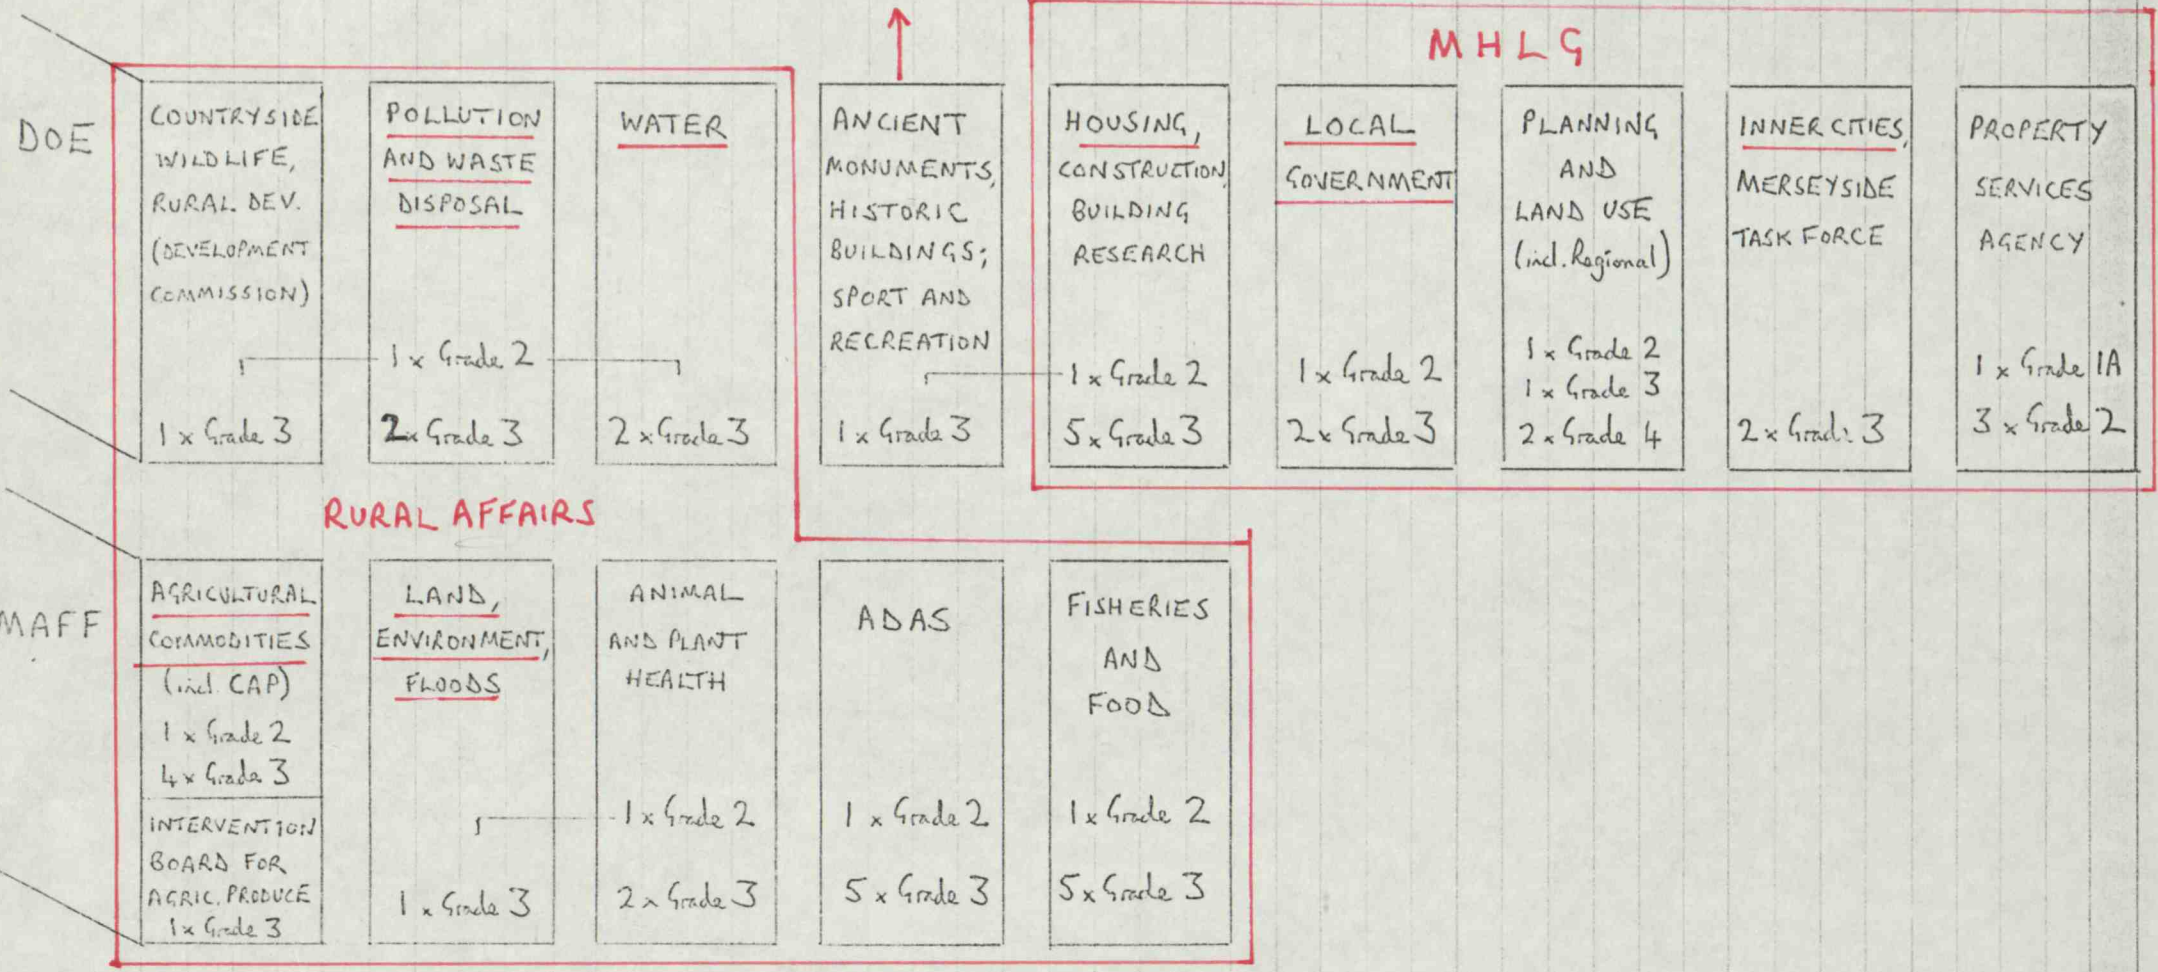 MHLG
DOE
COUNTRYSIDE
WILDLIFE,
RURAL DEV.
(DEVELOPMENT
COMMISSION)
1 x Grade 3
POLLUTION
AND WASTE
DISPOSAL
1 x Grade 2
2 x Grade 3
WATER
2 x Grade 3
ANCIENT
MONUMENTS,
HISTORIC
BUILDINGS;
SPORT AND
RECREATION
1 x Grade 3
HOUSING,
CONSTRUCTION,
BUILDING
RESEARCH
1 x Grade 2
5 x Grade 3
LOCAL
GOVERNMENT
1 x Grade 2
2 x Grade 3
PLANNING
AND
LAND USE
(incl. Regional)
1 x Grade 2
1 x Grade 3
2 x Grade 4
INNER CITIES,
MERSEYSIDE
TASK FORCE
2 x Grade 3
PROPERTY
SERVICES
AGENCY
1 x Grade 1A
3 x Grade 2
RURAL AFFAIRS
MAFF
AGRICULTURAL
COMMODITIES
(incl. CAP)
1 x Grade 2
4 x Grade 3
INTERVENTION
BOARD FOR
AGRIC. PRODUCE
1 x Grade 3
LAND,
ENVIRONMENT,
FLOODS
1 x Grade 3
ANIMAL
AND PLANT
HEALTH
1 x Grade 2
2 x Grade 3
ADAS
1 x Grade 2
5 x Grade 3
FISHERIES
AND
FOOD
1 x Grade 2
5 x Grade 3